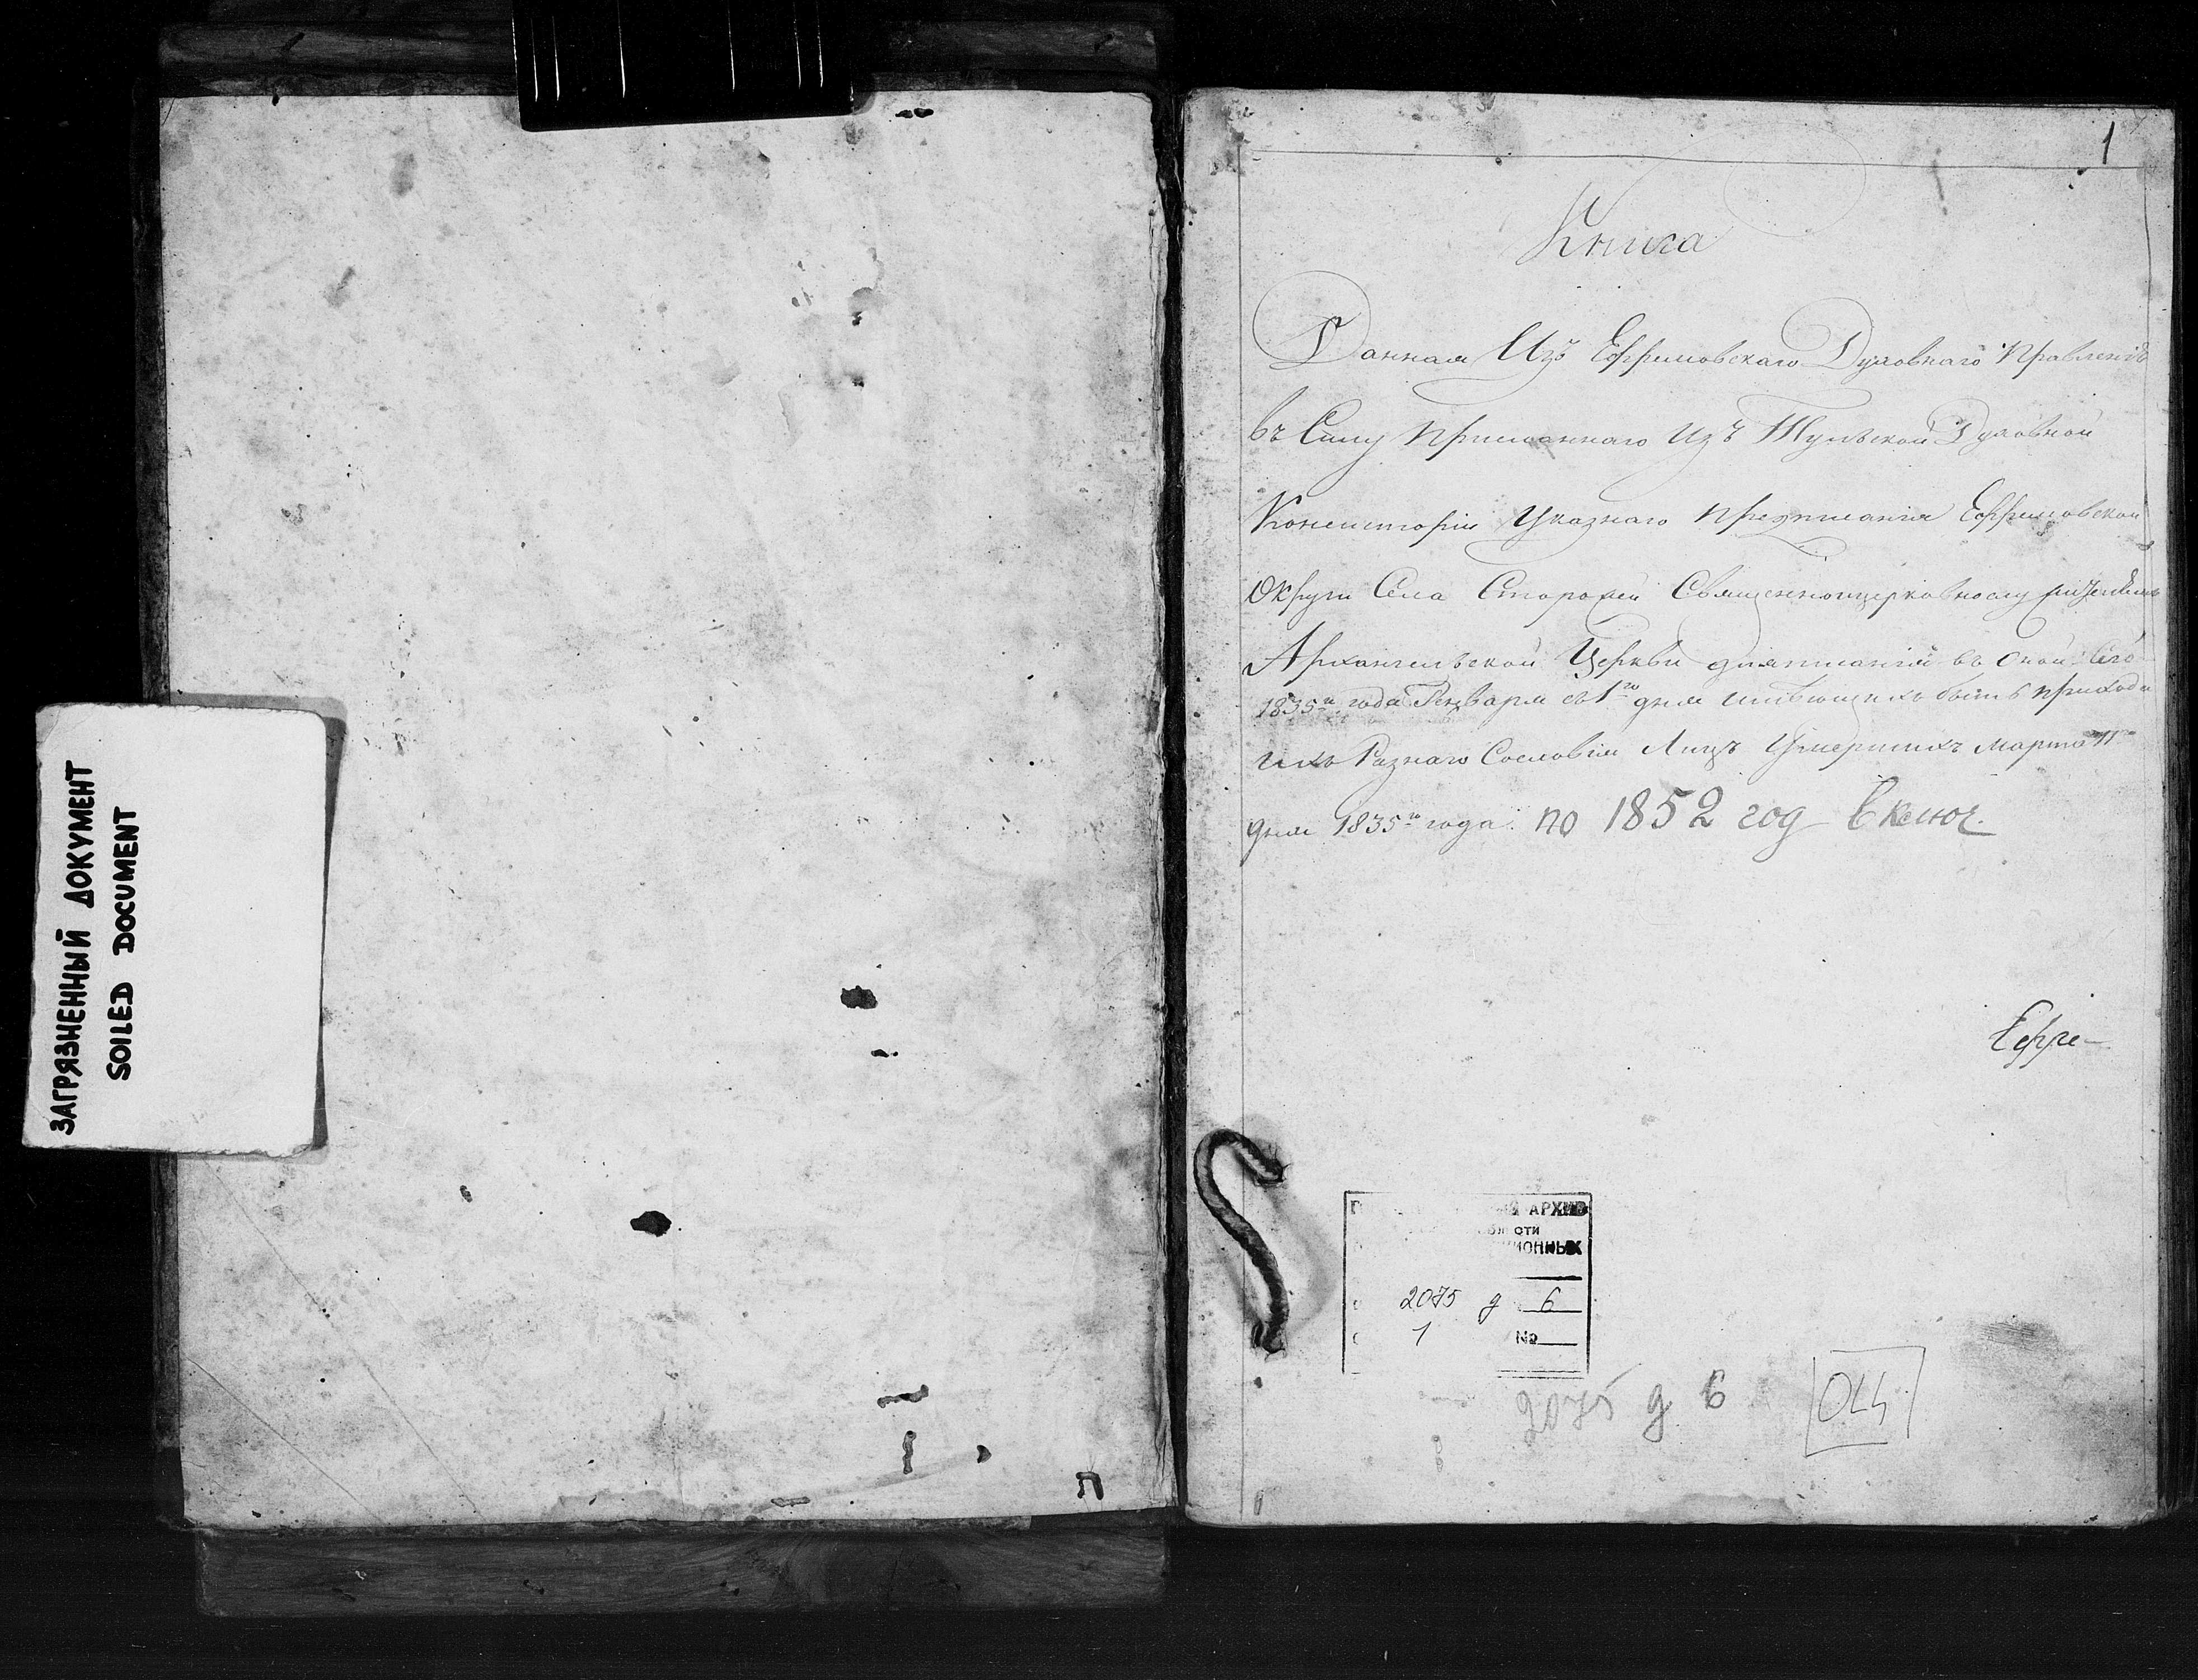 ЗАГРЯЗНЕННЫЙ ДОКУМЕНТ
SOILED DOCUMENT
1
Книга
Данная Изъ Ефремовскаго Духовнаго Правленія
въ Силу Присланнаго Изъ Тульской Духовной
Консисторіи Указнаго Предписанія Ефремовской
Округи Села Сторожеи Священноцерковнослужителямъ
Архангельской Церкви для писанія въ оной Сего
1835го года Генваря съ 1го дня имеющихъ быть в приходе
ихъ Разнаго Сословія Лицъ Умершихъ Марта 11го
дня 1835го года. по 1852 год включ.
Ефре-
АРХИВ
2075 д 6
1 №
2075 д 6
ОЦ